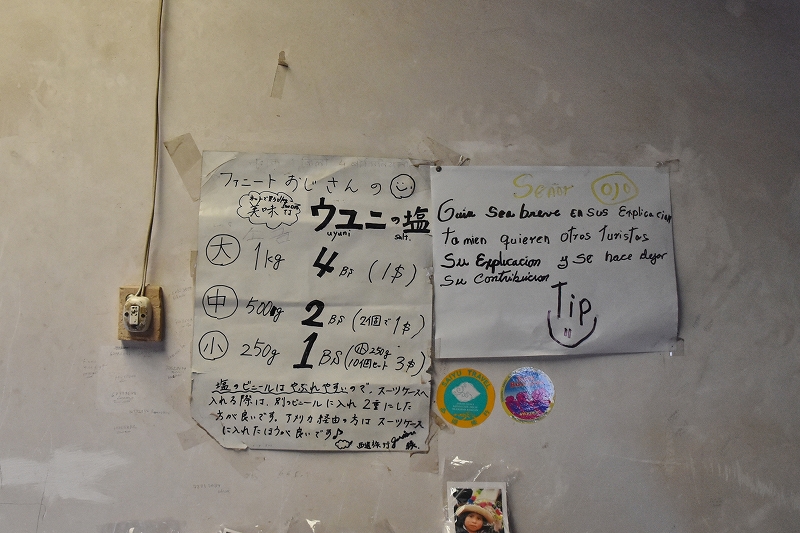 ファニートおじさんの
美味
ウユニの塩
uyuni
salt.
大 1kg 4 BS (1$)
中 500g 2 BS (2個で1$)
小 250g 1 BS (小250g 10個セット 3$)
塩のビニールはやぶれやすいので、スーツケースへ
入れる際は、別のビニールに入れ2重にした
方が良いです。アメリカ経由の方はスーツケース
に入れたほうが良いです♪
Señor OJO
Guia Sea breve en sus Explicacion
tamien quieren otros Turistas
Su Explicacion y se hace dejar
Su Contribucion
Tip
SAIYU TRAVEL